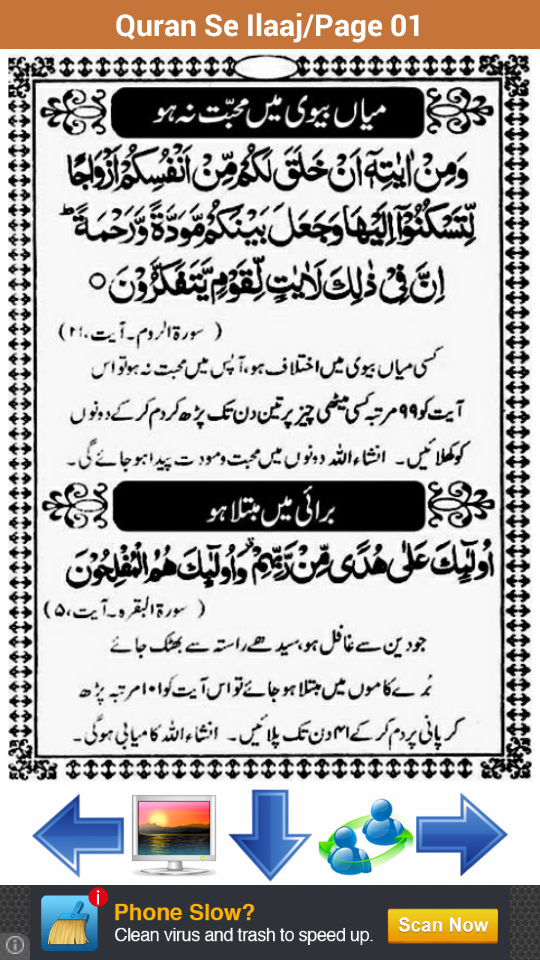 Quran Se Ilaaj/Page 01
میاں بیوی میں محبّت نہ ہو
وَمِنْ اٰیٰتِهٖۤ اَنْ خَلَقَ لَكُمْ مِّنْ اَنْفُسِكُمْ اَزْوَاجًا
لِّتَسْكُنُوْۤا اِلَیْهَا وَجَعَلَ بَیْنَكُمْ مَّوَدَّةً وَّرَحْمَةً ؕ
اِنَّ فِیْ ذٰلِكَ لَاٰیٰتٍ لِّقَوْمٍ یَّتَفَكَّرُوْنَ ○
( سورۃ الروم۔ آیت،۲۱)
کسی میاں بیوی میں اختلاف ہو، آپس میں محبت نہ ہو تو اس
آیت کو ۹۹ مرتبہ کسی میٹھی چیز پر تین دن تک پڑھ کر دم کر کے دونوں
کو کھلائیں۔ انشاء اللہ دونوں میں محبت و مودت پیدا ہو جائے گی۔
برائی میں مبتلا ہو
اُولٰٓئِكَ عَلٰی هُدًی مِّنْ رَّبِّهِمْ ۙ وَاُولٰٓئِكَ هُمُ الْمُفْلِحُوْنَ
( سورۃ البقرہ۔ آیت،۵)
جو دین سے غافل ہو، سیدھے راستہ سے بھٹک جائے
بُرے کاموں میں مبتلا ہو جائے تو اس آیت کو ۱۰۱ مرتبہ پڑھ
کر پانی پر دم کر کے ۴۱ دن تک پلائیں۔ انشاء اللہ کامیابی ہو گی۔
Phone Slow?
Clean virus and trash to speed up.
Scan Now